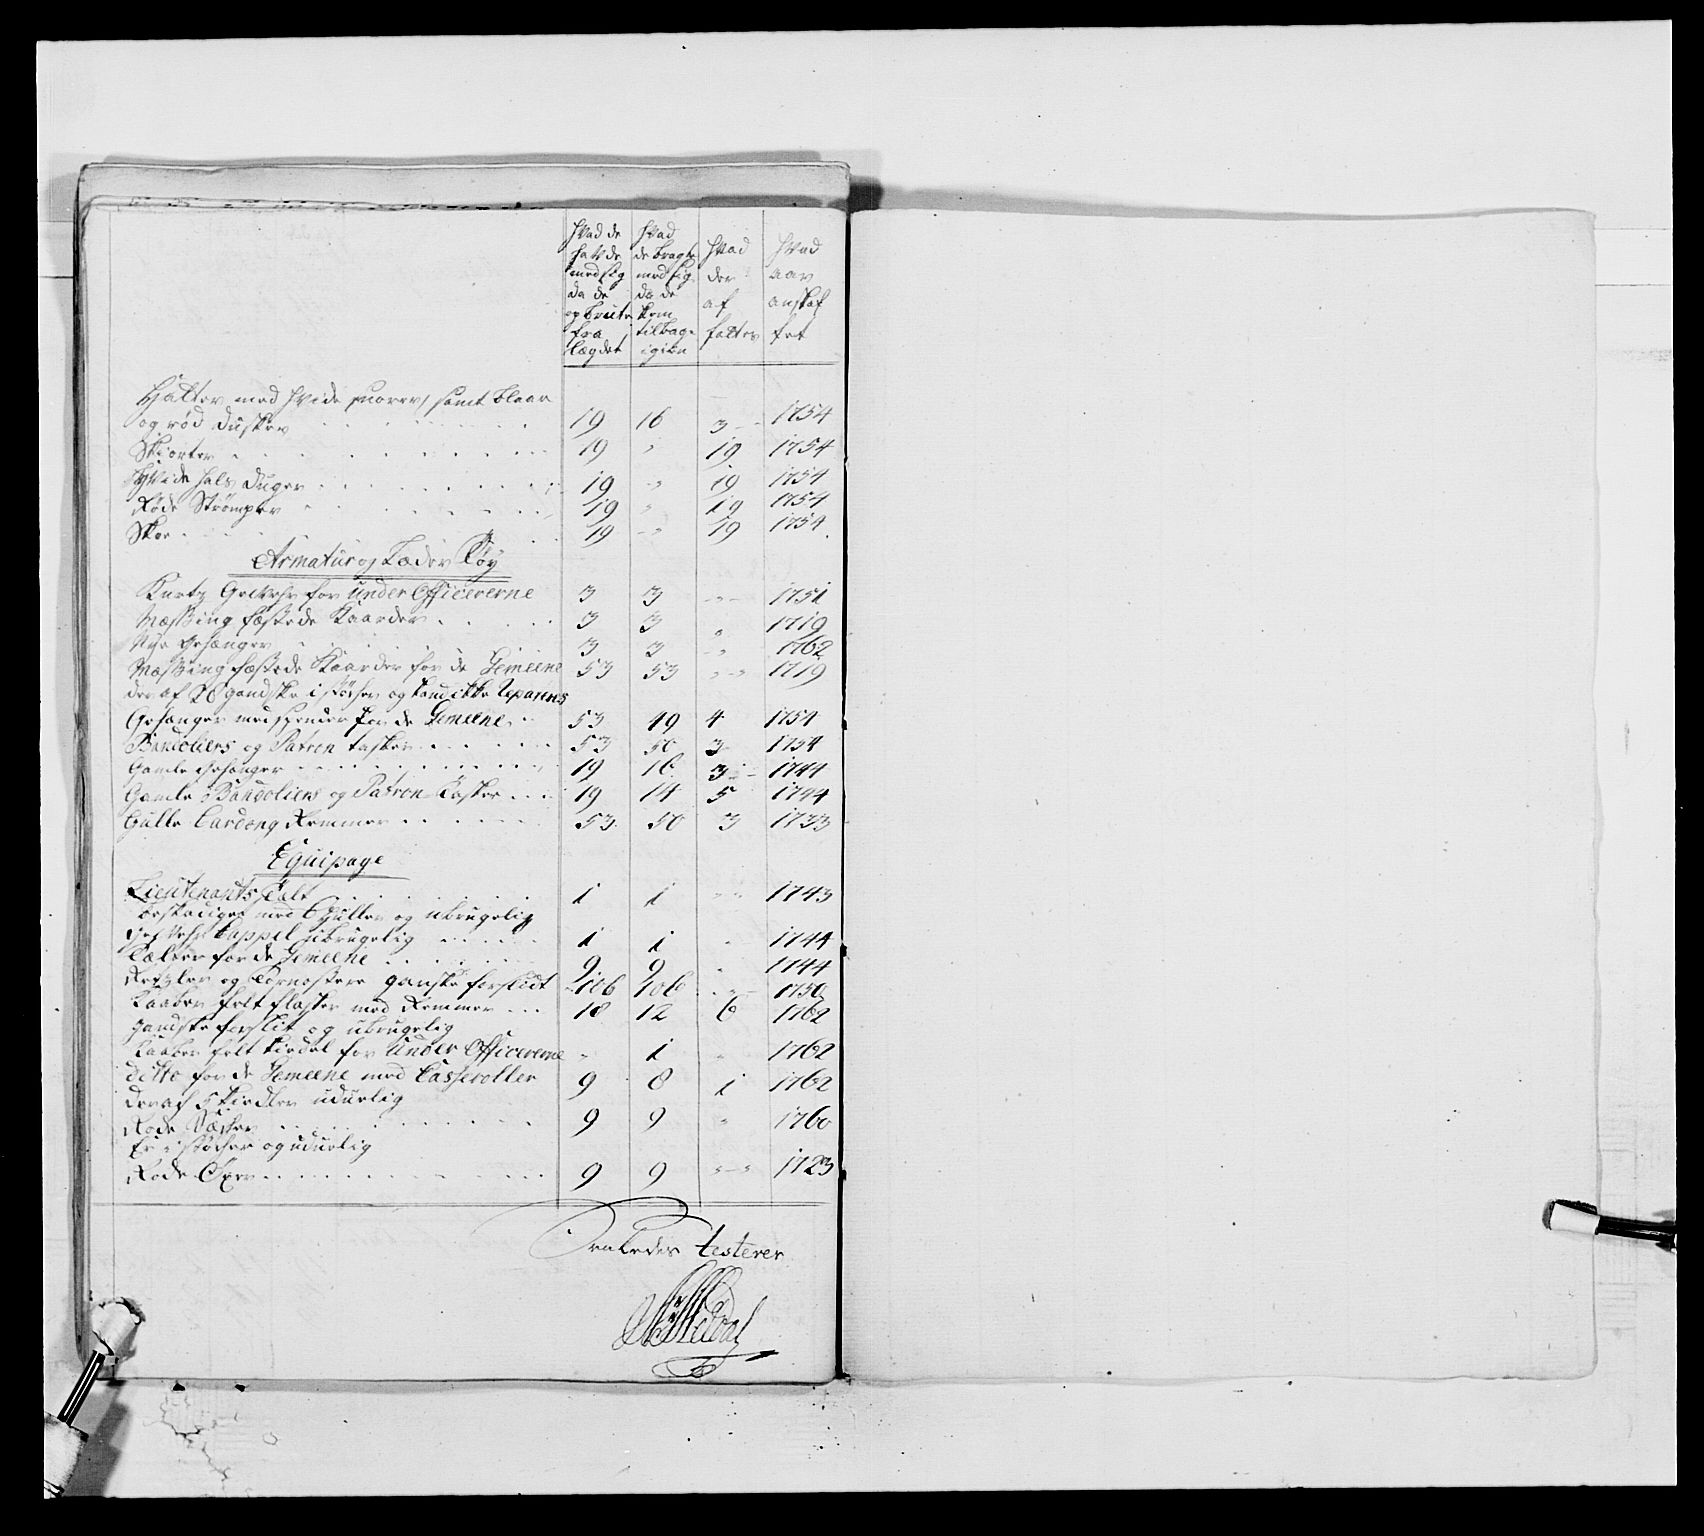 Hvad de havde med sig da de opbrøte fra lægdet
Hvad de bragte med sig da de kom tilbage igien
Hvad der af fattes
Hvad aar anskaffet
Hatter med hvide snorer, samt blaae
og rød Dusker 19 16 3 1754
Skiorter 19 " 19 1754
Hvide hals Duger 19 " 19 1754
Røde Strømper 19 " 19 1754
Skoe 19 " 19 1754
Armatur og Læder Tøy
Kurtz Gevehr for Under Officererne 3 3 " 1751
Messing fæstede Kaarder 3 3 " 1719
Nye Gehænger 3 3 " 1762
Messing fæstede Kaarder for de Gemeene 53 53 " 1719
der af gandske i støcher og kand ikke repareres
Gehænger med spender for de Gemeene 53 49 4 1754
Bandoliers og Patron tasker 53 50 3 1754
Gamle Gehænger 19 16 3 1744
Gamle Bandoliers og Patron Tasker 19 14 5 1744
Gulle Cardong Remmer 53 50 3 1733
Equipage
Lieutenants Telt 1 1 " 1743
beskadiget med Huller og ubrugelig
Gevehr Cappel ubrugelig 1 1 " 1744
Telter for de Gemeene 9 9 " 1744
og Tornestere ganske forslidt 106 106 " 1750
Kaaber felt flasker med Remmer 18 12 6 1762
gandske forslit og ubrugelig
Kaaber felt Kiedel for Under Officererne " 1 " 1762
ditto for de Gemeene med Casseroller 9 8 1 1762
deraf 5 Kiedler uduelig
Rode 9 9 " 1760
Er i støcher og uduelig
Rode Øxer 9 9 " 1723
testerer